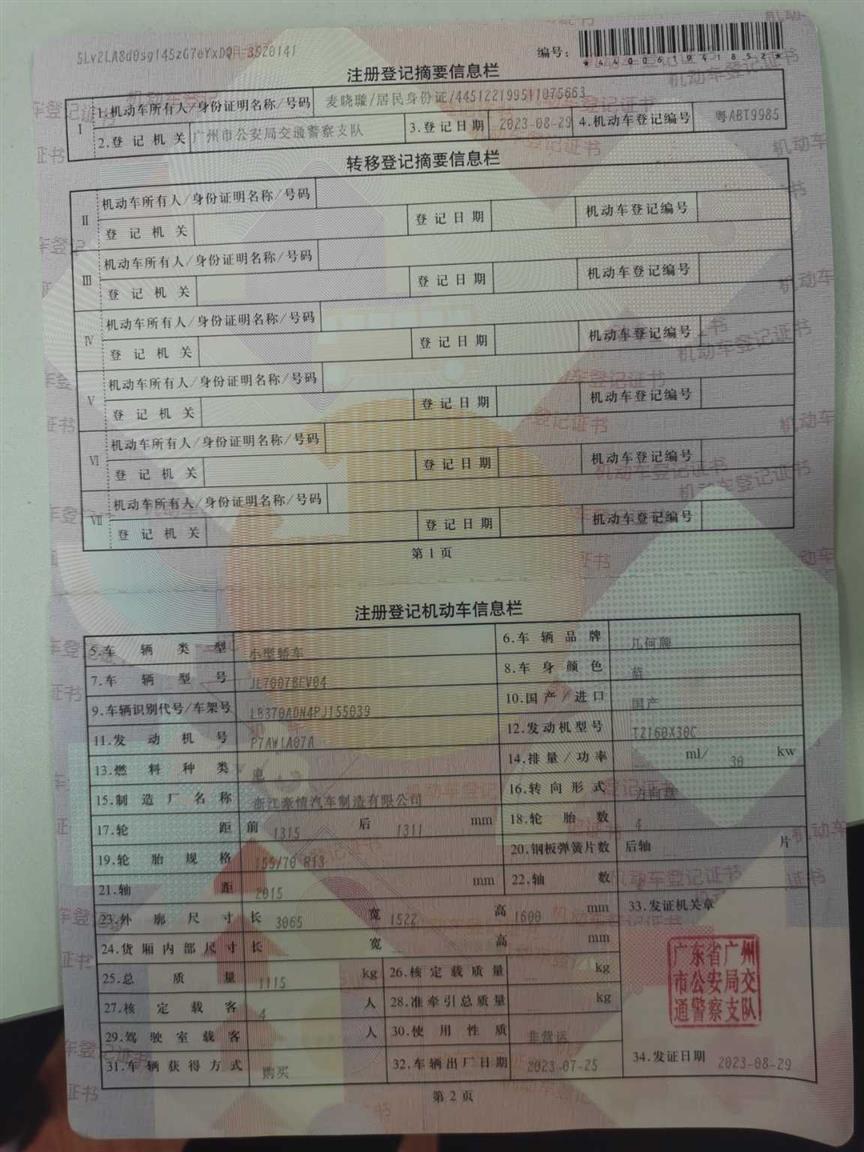 编号：
*440061941852*
注册登记摘要信息栏
I 1.机动车所有人/身份证明名称/号码 麦晓璇/居民身份证/445122199511075663
2.登记机关 广州市公安局交通警察支队 3.登记日期 2023-08-29 4.机动车登记编号 粤ABT9985
转移登记摘要信息栏
II 机动车所有人/身份证明名称/号码
登记机关 登记日期 机动车登记编号
III 机动车所有人/身份证明名称/号码
登记机关 登记日期 机动车登记编号
IV 机动车所有人/身份证明名称/号码
登记机关 登记日期 机动车登记编号
V 机动车所有人/身份证明名称/号码
登记机关 登记日期 机动车登记编号
VI 机动车所有人/身份证明名称/号码
登记机关 登记日期 机动车登记编号
VII 机动车所有人/身份证明名称/号码
登记机关 登记日期 机动车登记编号
第1页
注册登记机动车信息栏
5.车辆类型 小型轿车 6.车辆品牌 几何牌
7.车辆型号 JL7007BEV04 8.车身颜色 蓝
9.车辆识别代号/车架号 LB370ADN4PJ155039 10.国产/进口 国产
11.发动机号 P7AW1A07A 12.发动机型号 TZ160X30C
13.燃料种类 电 14.排量/功率 ml/ 30 kw
15.制造厂名称 浙江豪情汽车制造有限公司 16.转向形式 方向盘
17.轮距 前 1315 后 1311 mm 18.轮胎数 4
19.轮胎规格 155/70 R13 20.钢板弹簧片数 后轴 片
21.轴距 2015 mm 22.轴数
23.外廓尺寸 长 3065 宽 1522 高 1600 mm 33.发证机关章
24.货厢内部尺寸 长 宽 高 mm
广东省广州
市公安局交
通警察支队
25.总质量 1115 kg 26.核定载质量 kg
27.核定载客 4 人 28.准牵引总质量 kg
29.驾驶室载客 人 30.使用性质 非营运
31.车辆获得方式 购买 32.车辆出厂日期 2023-07-25 34.发证日期 2023-08-29
第2页